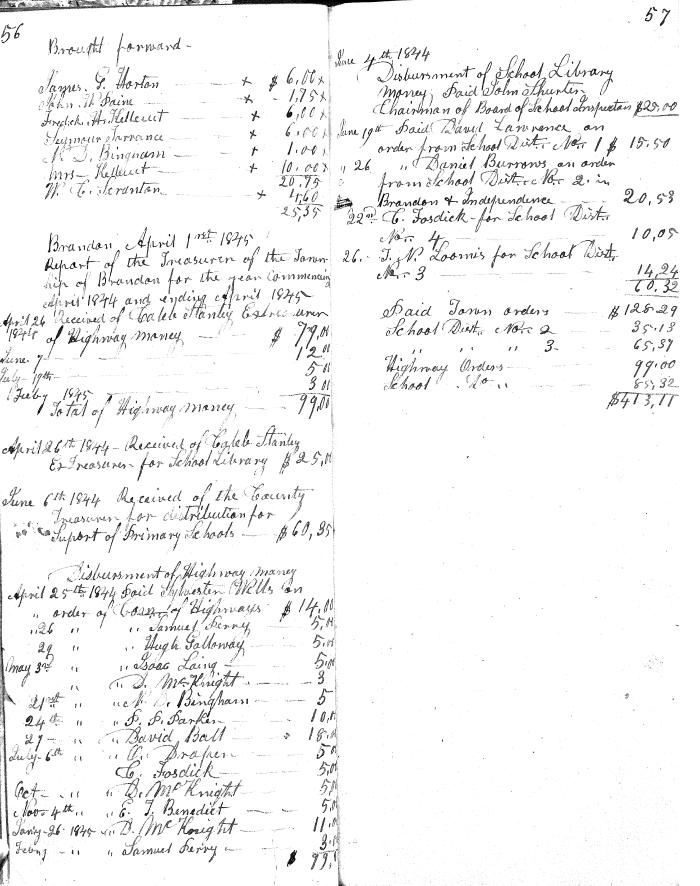 56
Brought forward -
James. G. Horton x $ 6,00 x
John. W. Paine x - 1,75 x
Fredick. H. Kellecut x 6,00 x
Seymour Tarrance x 6.00 x
N. D. Bingham 1.00 x
Mrs - Kellecut x 10.00 x
20.75
W. C. Scranton x 4,60
25,35
Brandon April 1rst 1845
Report of the Treasurer of the Town
ship of Brandon for the year Commencing
April 1844 and ending April 1845
April 26 Received of Caleb Stanley Extreasurer
1844 of Highway Money $ 79,00
June 7 12 00
July 19th 5 00
1 Feeby 1845 3 00
Total of Highway money 99,00
April 26th 1844 - Received of Caleb Stanley
Ex Treasurer for School Library $25,00
June 6th 1844 Received of the County
Treasurer for distribution for
Suport of Primary Schools - $60,35
Disbursment of Highway money
April 25th 1844 Paid Sylvester Wells on
" order of Com of Highways $14,00
" 26 " " Samuel Ferry 5.00
29 " " Hugh Galloway - 5.00
May 3rd " " Isaac Laing - 5,00
" " D. McKnight - 3
21rst " " N. D. Bingham - 5
24th " " F. F. Parker - 10,00
27 - " " David Ball - 18.00
July - 6th " " O. Draper - 5 00
C. Fosdick - 5,00
Oct - " " D. McKnight 5,00
Nov - 4th " " E. T. Benedict - 5,00
Jany - 26 1845 " D. McKnight - 11.00
Feby - " " Samuel Ferry - 3.00
$ 99,00
57
June 4th 1844
Disbursment of School Library
Money, Paid John Thurston
Chairman of Board of School Inspectors $25.00
June 19th Paid David Lawrence on
order from School Dist. No. 1 $ 15.50
" 26 " Daniel Burrows on order
from School Dist. No. 2. in
Brandon & Independence - 20,53
22nd C. Fosdick - for School Dist.
No. 4 10,05
26 - T. N. Loomis for School Dist,
No. 3 14,24
60.32
Paid Town orders $128.29
School Dist. No. 2 35.13
" " " 3 - 65,37
Highway Orders - 99.00
School " Do " 85,32
$413,11